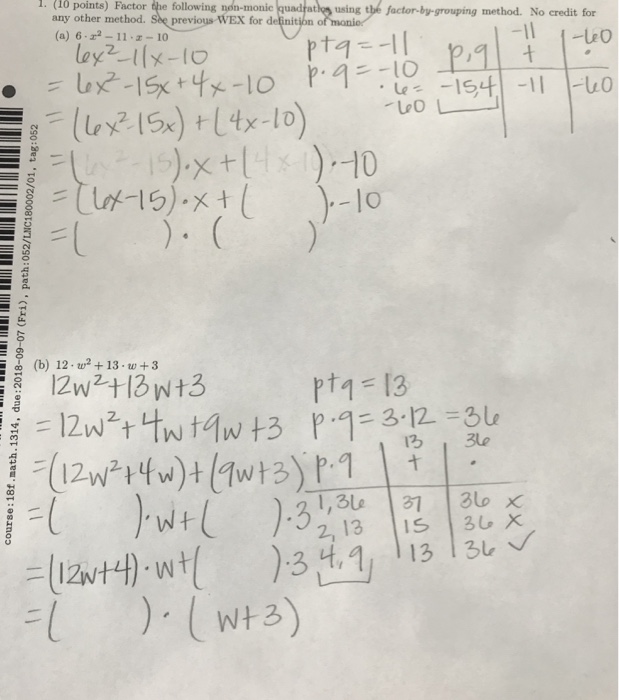 1. (10 points) Factor the following non-monic quadratics using the factor-by-grouping method. No credit for
any other method. See previous WEX for definition of monic.
(a) 6 · x² − 11 · x − 10
6x²-11x-10
= 6x²-15x+4x-10
= (6x²-15x)+(4x-10)
=( )·x+( )·-10
= (6x-15)·x+( )·-10
=( )·( )
p+q=-11
p·q=-10
·6=
-60
p,q -11 -60
+ ·
-15,4 -11 -60
(b) 12 · w² + 13 · w + 3
12w²+13w+3
= 12w²+4w+9w+3
=(12w²+4w)+(9w+3)
=( )·w+( )·3
=(12w+4)·w+( )·3
=( )·(w+3)
p+q=13
p·q=3·12=36
p.q 13 36
+ ·
1,36 37 36 x
2,13 15 36 x
4,9 13 36 ✓
course:18f.math.1314, due:2018-09-07 (Fri), path:052/LNC180002/01, tag:052